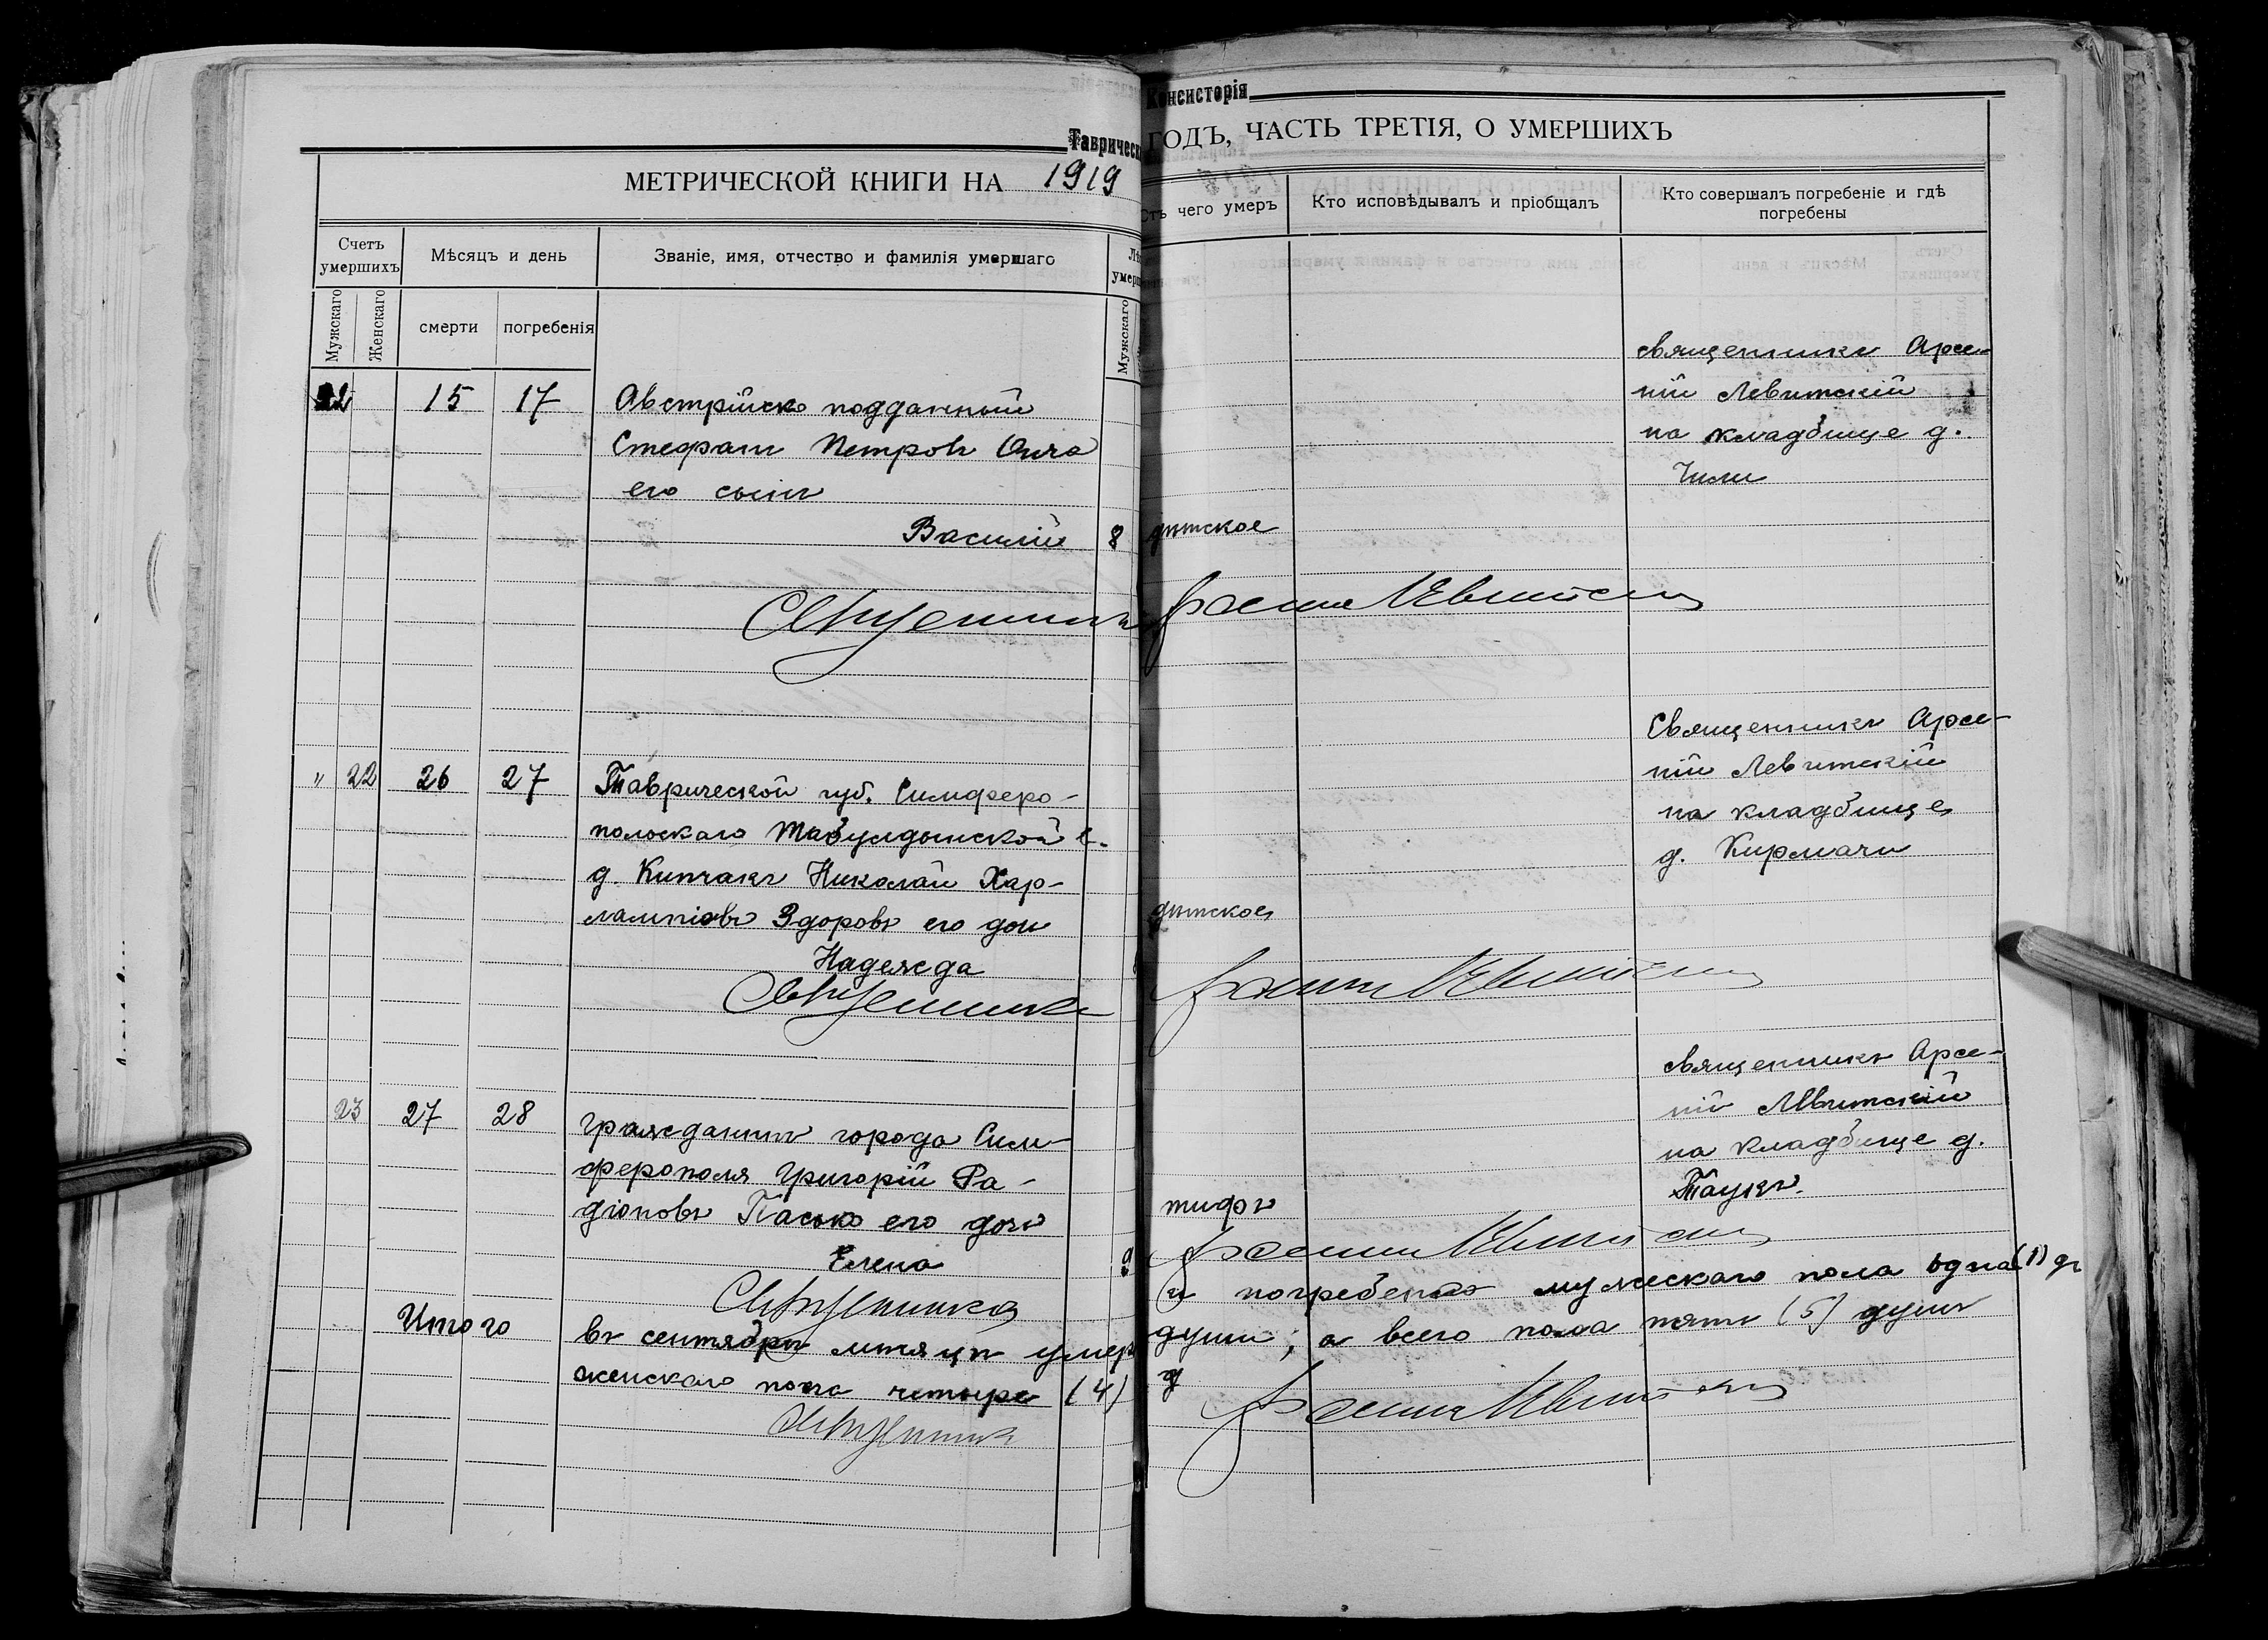 Таврическ
МЕТРИЧЕСКОЙ КНИГИ НА 1919
Счетъ умершихъ
Мѣсяцъ и день
Званіе, имя, отчество и фамилія умершаго
Мужскаго
Женскаго
смерти
погребенія
Мужскаго
15 17 Австрійско подданный
Стефанъ Петровъ
его сынъ
Василій 8
Священникъ
" 22 26 27 Таврической губ. Симферо-
польскаго Табулдынской в.
д. Кипчакъ Николай Хар-
лампіовъ Здоровъ его доч
Надежда
Священникъ
23 27 28 Гражданинъ города Сим-
ферополя Григорій Ра-
діоновъ Пасько его дочь
Елена 9
Священникъ
Итого въ сентябрѣ мѣсяцѣ умер
женскаго пола четыре (4)
Священникъ
Консисторія
ГОДЪ, ЧАСТЬ ТРЕТІЯ, О УМЕРШИХЪ
чего умеръ
Кто исповѣдывалъ и пріобщалъ
Кто совершалъ погребеніе и гдѣ
погребены
священникъ Арсе-
ній Левитскій
на кладбище д.
Чили
дѣтское
Арсеній Левитскій
Священникъ Арсе-
ній Левитскій
на кладбище
д. Кирмачи
дѣтское
Арсеній Левитскій
священникъ Арсе-
ній Левитскій
на кладбище д.
Таукъ.
тифъ
Арсеній Левитскій
и погребено мужескаго пола одна (1) д
души; а всего пола пять (5) душъ
Арсеній Левитскій